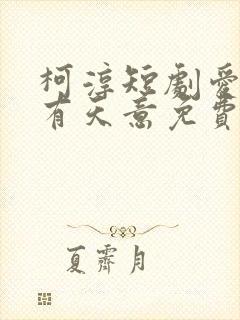 柯淳短劇愛
有天意免費
夏霽月